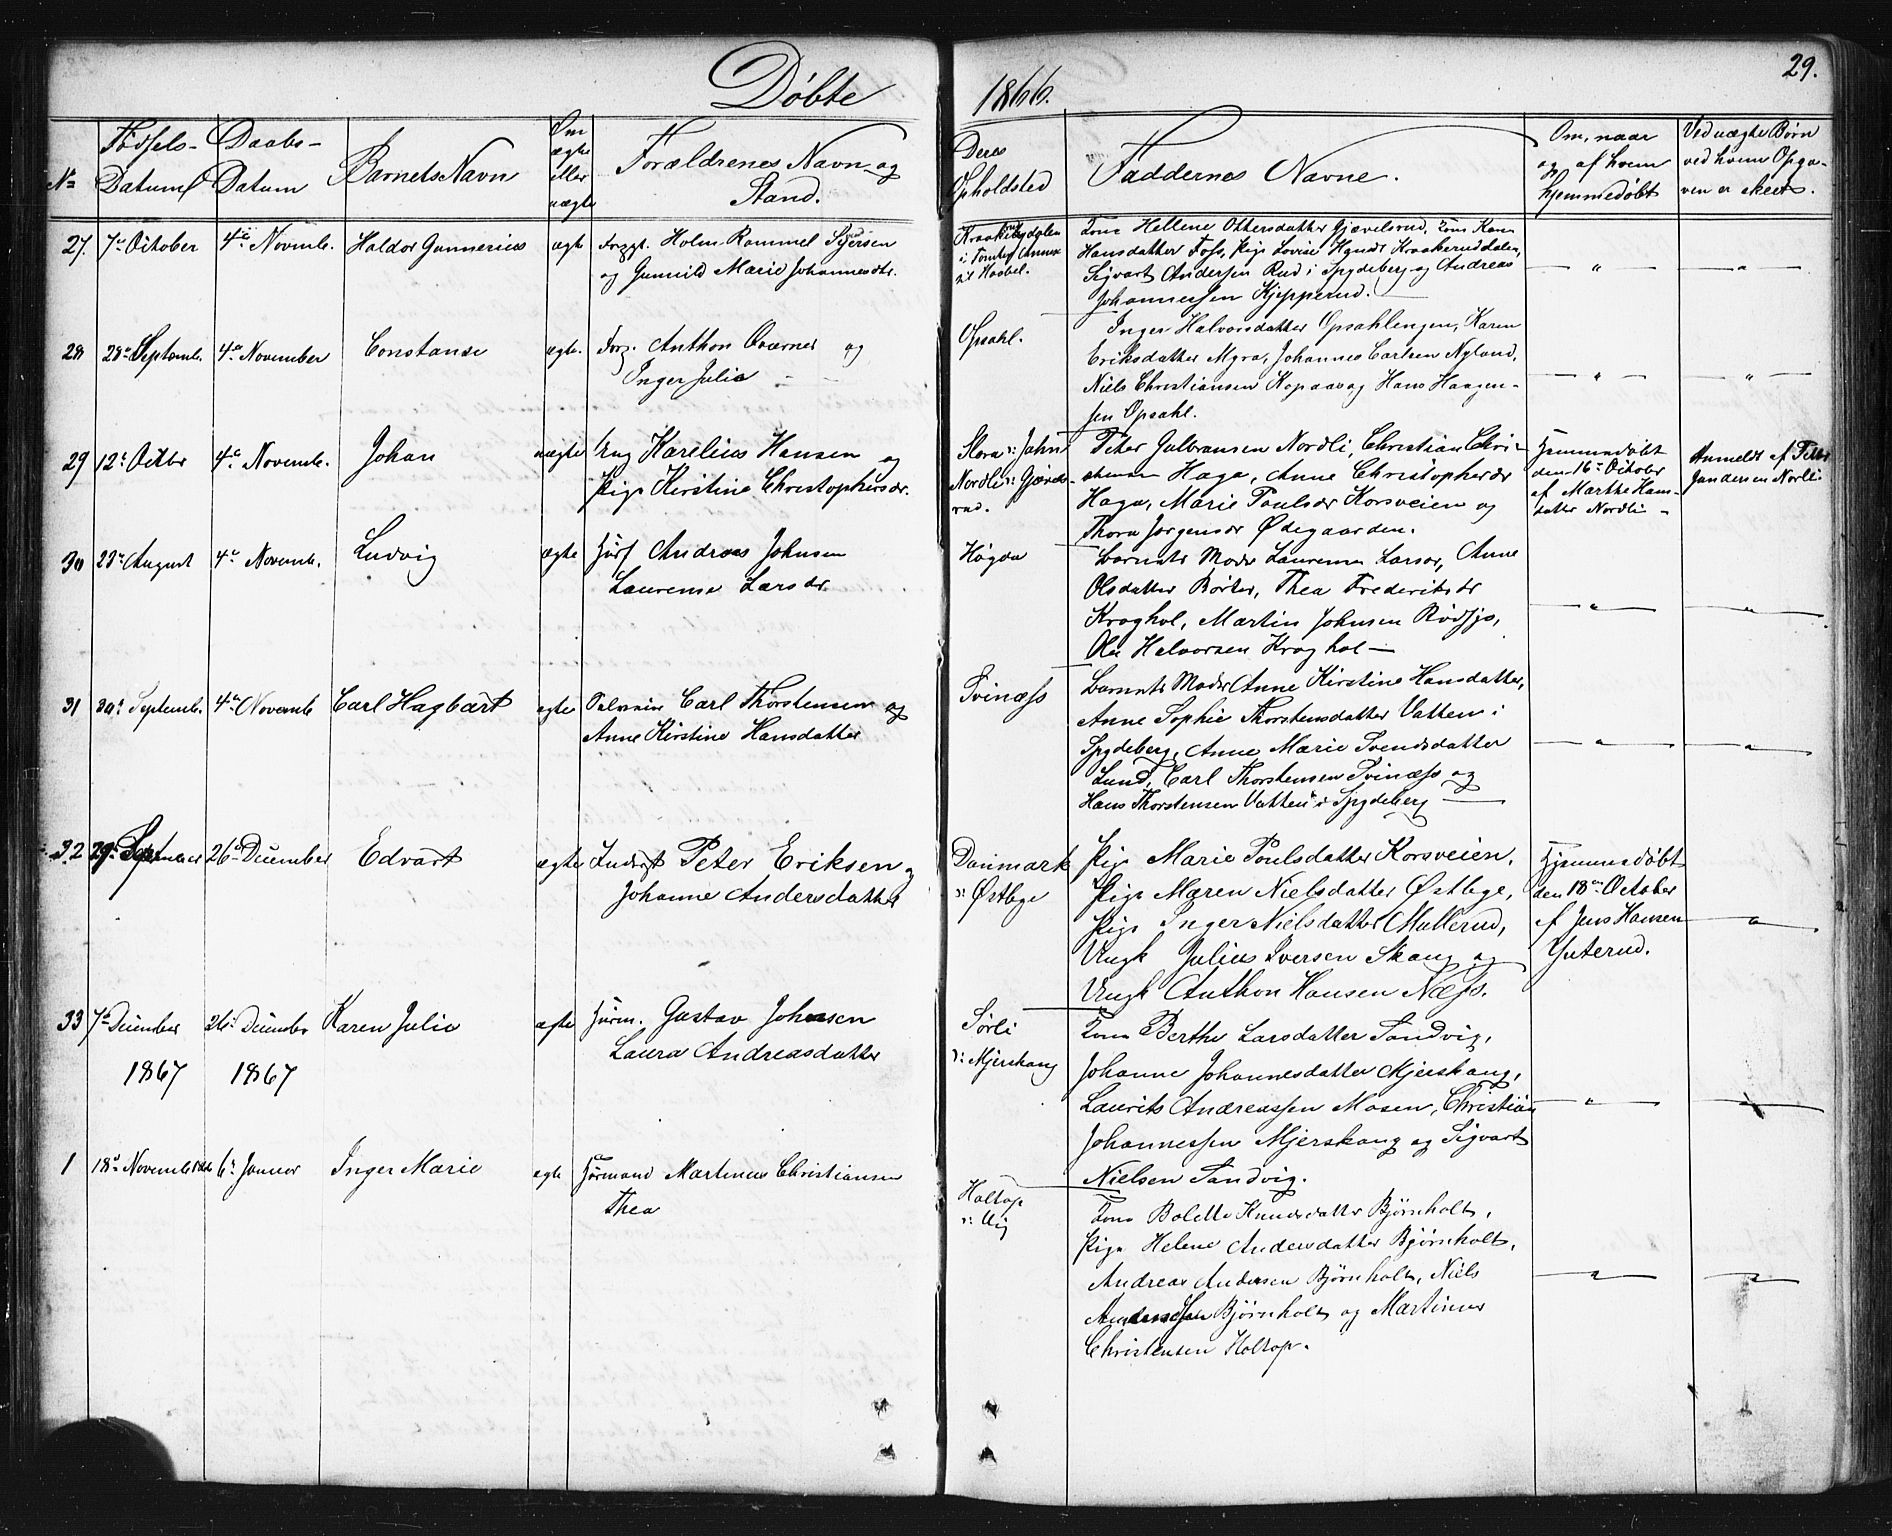 Døbte
1866.
29.
No
Fødsels-
Datum
Daabs-
Datum
Barnets Navn
Om
ægte
eller
uægte
Forældrenes Navn og
Stand.
Deres
Opholdsted
Faddernes Navne.
Om, naar
og af hvem
hjemmedøbt
Ved uægte Børn
ved hvem Opga-
ven er skeet.
27. 7de October 4de Novemb. Haldor Gunnerius ægte Forpgt. Holm Rammel Syversen
og Gunnild Marie Johannesdtr.
i Tomter Annex
til Haabel.
Kone Hellene Ottersdatter Gjævelsrud, Kone Karen
Hansdatter Foss, Pige Lovise Kraakeruddalen,
Sigvart Andersen Rud i Spydeberg og Andreas
Johannessen Kjepperud.
— " — — " —
28 28de Septemb. 4de November Constanse ægte. Forp. Anthon Overner og
Inger Julie — —
Opsahl.
Inger Halvorsdatter Opsahlengen, Karen
Eriksdatter Myra, Johannes Carlsen Nyland,
Niels Christiansen Kopaas og Hans Haagen-
sen Opsahl.
— " — — " —
29 12te Octbr 4de Novemb. Johan uægte Ung Karelius Hansen og
Pige Kirstine Christophersdr.
Slora v: Jahn
Nordli v: Gjævels-
rud.
Peter Gulbransen Nordli, Christian Chri-
stensen Haga, Anne Christophersdr
Haga, Marie Poulsdr Korsveien og
Thora Jørgensdr Ødegaarden.
Hjemmedøbt
den 16de October
af Marthe Hans-
datter Nordli —
Anmeldt af Peter
Gundersen Norli.
30 23de August 4de Novemb. Ludvig ægte Huusf Andreas Johnsen
Laurense Larsdr.
Høgda
Barnets Moder Laurense Larsdr, Anne
Olsdatter Börter, Thea Frederiksdr
Kroghol, Martin Johnsen Rødsjø,
Ole Halvorsen Kroghol —
— " — — " —
31 30te Septemb. 4de Novemb Carl Hagbart ægte Carl Thorstensen og
Anne Kirstine Hansdatter
Tvinæss
Barnets Moder Anne Kirstine Hansdatter,
Anne Sophie Thorstensdatter Vatten i
Spydeberg, Anne Marie Svendsdatter
Lund, Carl Thorstensen Tvinæss og
Hans Thorstensen Vatten i Spydeberg —
— " — — " —
32 29de September 26de December Edvart ægte Inderst Peter Eriksen og
Johanne Andersdatter
Danmark
v: Østbye
Pige Marie Poulsdatter Korsveien,
Pige Maren Nielsdatter Østbye,
Pige Inger Nielsdatter Mullerud,
Ungk Julius Iversen Skang og
Ungk Anthon Hansen Næss.
Hjemmedøbt
den 18de October
af Jens Hansen
Yuterud.
— " —
33 7de December 26de Decembr Karen Julie ægte Huusm. Gustav Johnsen
Laura Andreasdatter
Sørli
v: Mjerskaug
Kone Berthe Larsdatter Sandvig,
Johanne Johannesdatter Mjerskaug,
Laurits Andreassen Mosen, Christian
Johannessen Mjerskaug og Sigvart
Nielsen Sandvig.
— " — — " —
1867 1867
1 18de November 1866 6te Januar Inger Marie ægte Husmand Martinus Christiansen
Thea
Holtop
v: Uig
Kone Bolette Knudsdatter Bjørnholt,
Pige Helene Andersdatter Bjørnholt,
Andreas Andersen Bjørnholt, Niels
Anderssen Bjørnholt og Martinus
Christensen Holtop.
— " — — " —